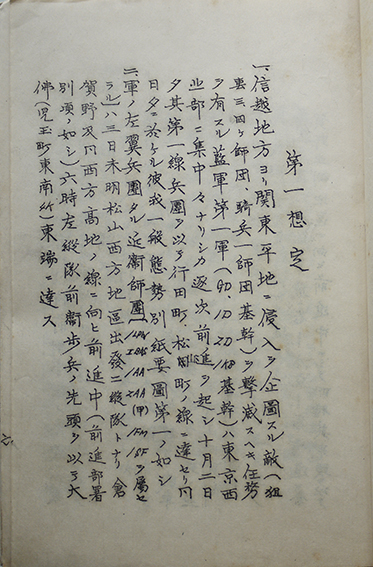 第一想定
一、信越地方ヨリ関東平地ニ侵入ヲ企圖スル敵(狙
裏三四ヶ師団、騎兵一師団基幹)ヲ撃滅スヘキ任務
ヲ有スル藍軍第一軍(9D、1D、2D、1KB基幹)ハ東京西
北部ニ集中中ナリシカ逐次前進ヲ起シ十月二日
夕其第一線兵團ヲ以テ行田町、松山町ノ線ニ達セリ同
日夕ニ於ケル彼我一般態勢別紙要圖第一ノ如シ
二、軍ノ左翼兵團タル近衛師團(
ラル)ハ三日未明松山西方地區出發二縦隊トナリ倉
賀野及同西方高地ノ線ニ向ヒ前進中(前進部署
別項ノ如シ)六時左縦隊前衛歩兵ノ先頭ヲ以テ大
佛(児玉町東南)東端ニ達ス